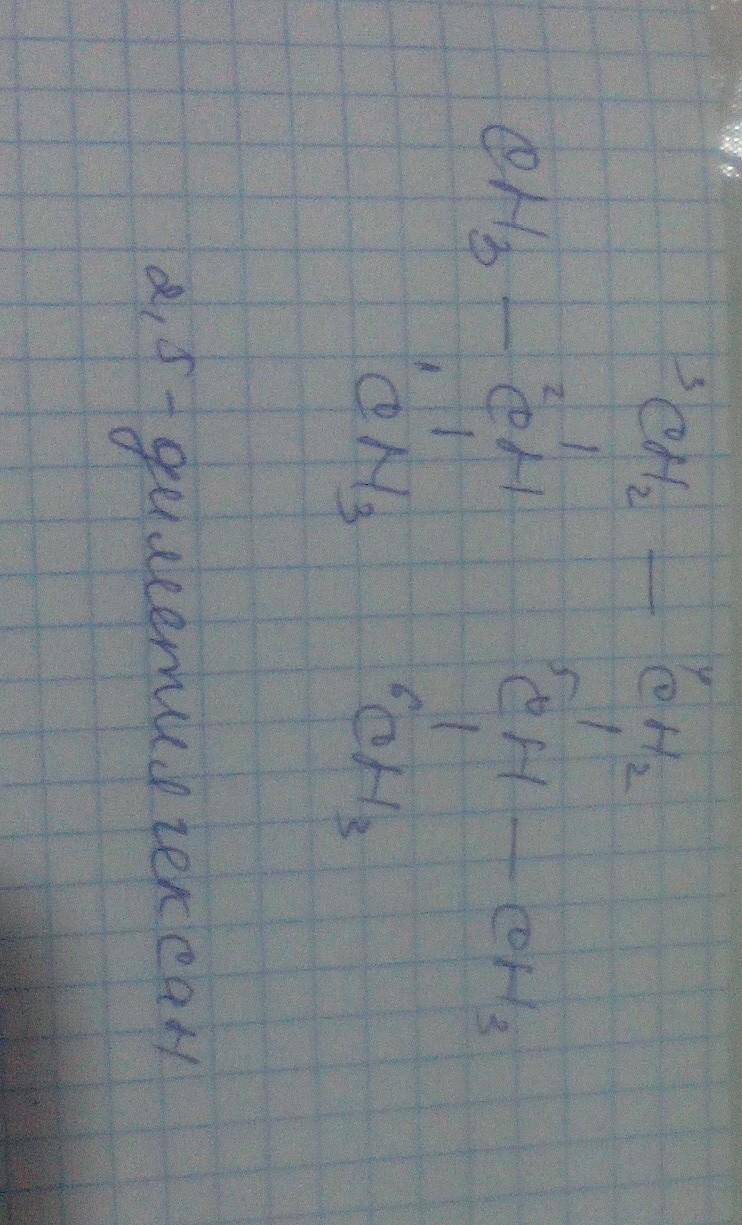 3CH2 — 4CH2
| |
CH3 — 2CH 5CH — CH3
| |
1CH3 6CH3
2,5-диметилгексан